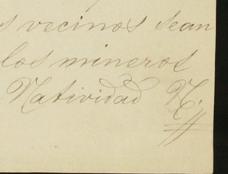 s vecinos sean
los mineros
Natividad N.